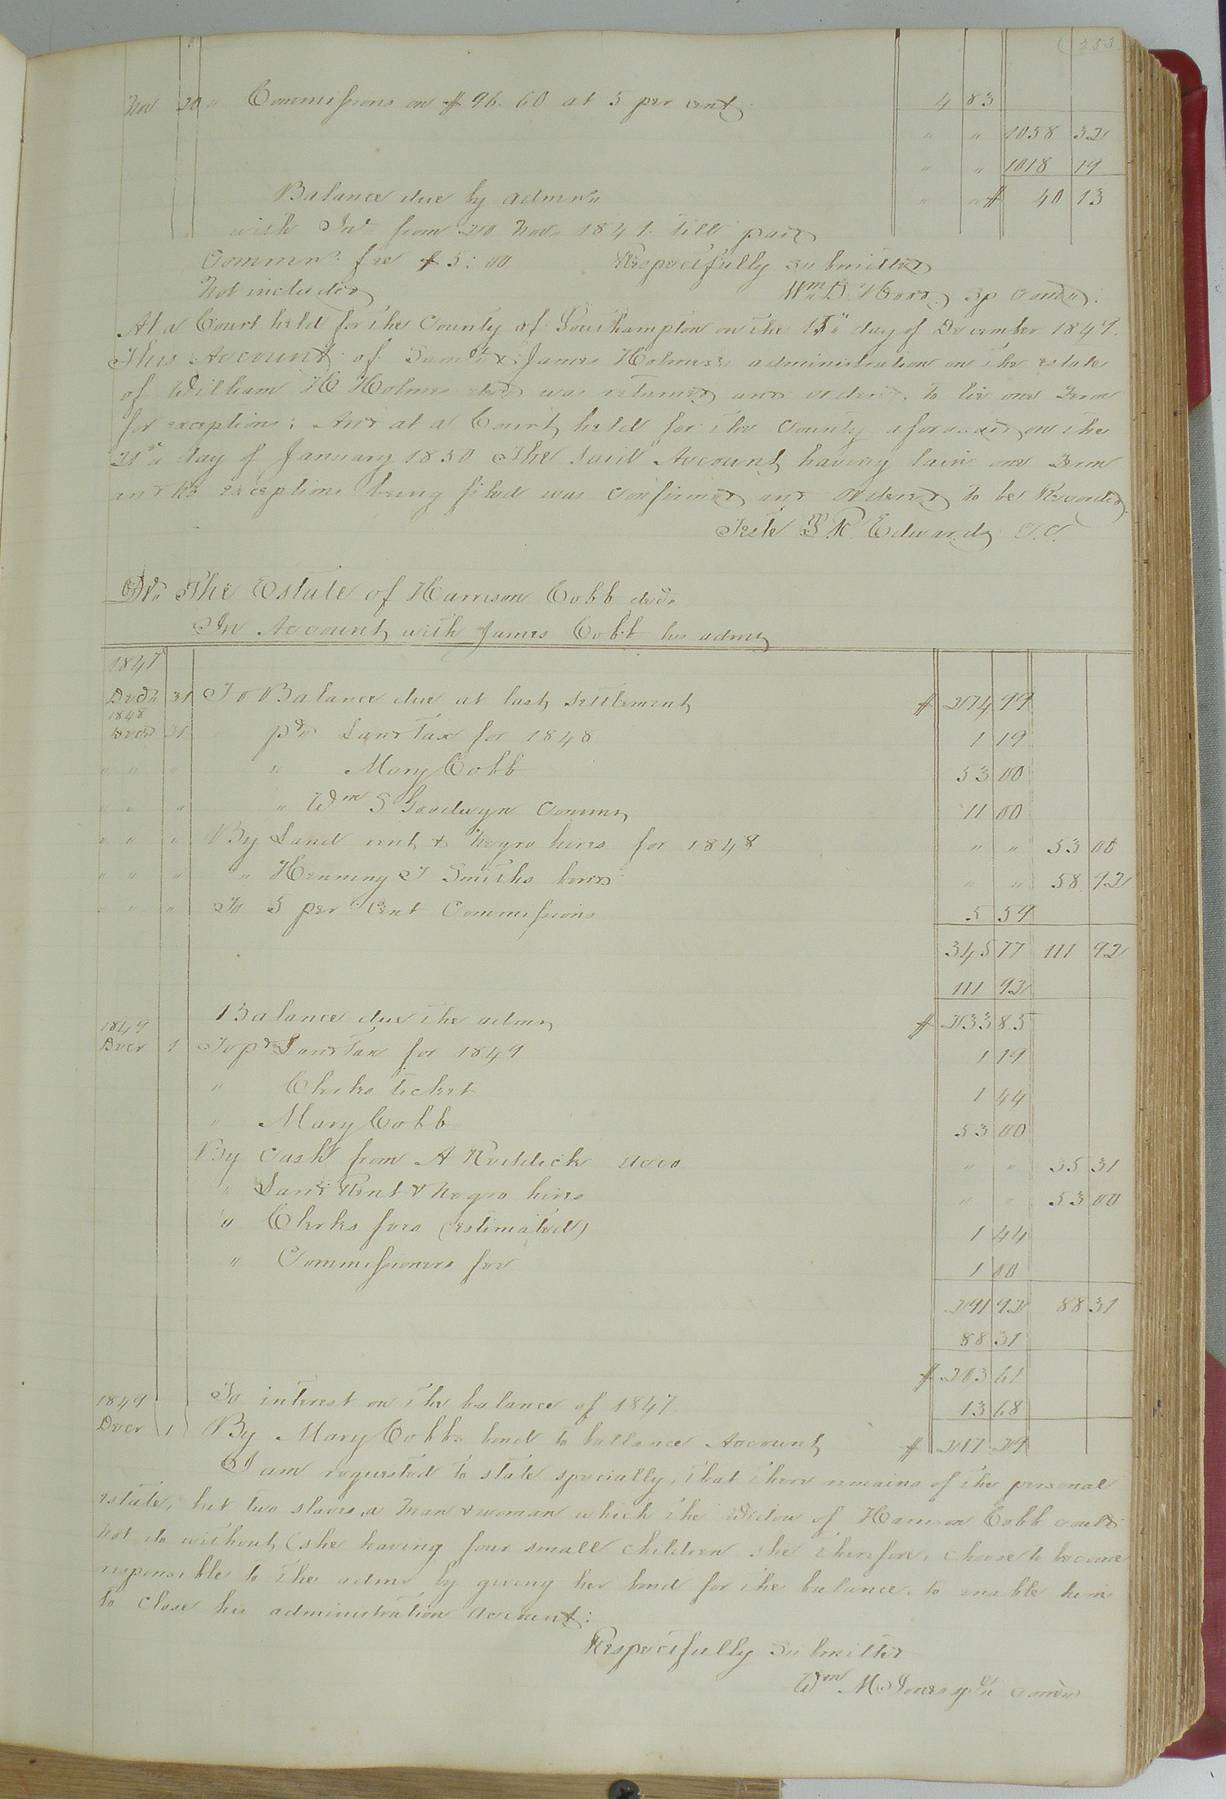 (383
Nov 20 " Commissions on $96.60 at 5 per cent 4 83
" " 1058 32
" " 1018 19
Balance due by admrs " " $ 40 13
with Int from 20 Novr 1847 till paid
Commrs fee $5:00 Respectfully submitted
Not included Wm B sp comr:
At a Court held for the County of Southampton on the day of December 1849.
This Account of & James Holmes's administration on the estate
of William H Holmes decd was returned and ordered to lie one Term
for exceptions; And at a Court held for the County aforesaid on the
21st day of January 1850 The said Account having lain one Term
and no exceptions being filed was confirmed and ordered to be Recorded
Teste L R Edwards C.C.
Dr. The Estate of Harrison Cobb decd.
In Account with James Cobb his admr
1847
Decr 31 To Balance due at last settlement $ 274 99
1848
Decr 31 " pd Land Tax for 1848 1 19
" " " " Mary Cobb 53 00
" " " " Wm S Goodwyn Commr 11 00
" " " By Land rent & Negro hires for 1848 " " 53 00
" " " " Henning T Smiths bond " " 58 92
" " " To 5 per Cent Commissions 5 59
345 77 111 92
111 92
Balance due the admr $ 233 85
1849
Decr 1 To pd Land Tax for 1849 1 19
" Clerks ticket 1 44
" Mary Cobb 53 00
By Cash from A Riddick " " 35 31
" Land Rent & Negro hires " " 53 00
" Clerks fees (estimated) 1 44
" Commissioners fee 1 00
291 92 88 31
88 31
$ 203 61
1849 To interest on the balance of 1847 13 68
Decr 1 By Mary Cobbs bond to ballance Account $ 217 29
I am requested to state specially, that there remains of the personal
estate, but two slaves, a man & woman which the widow of Harrison Cobb could
not do without (she having four small children she therefore, choose to become
responsible to the admr by giving her bond for the balance, to enable him
to close his administration account:
Respectfully Submitted
Wm M Jones spl comr